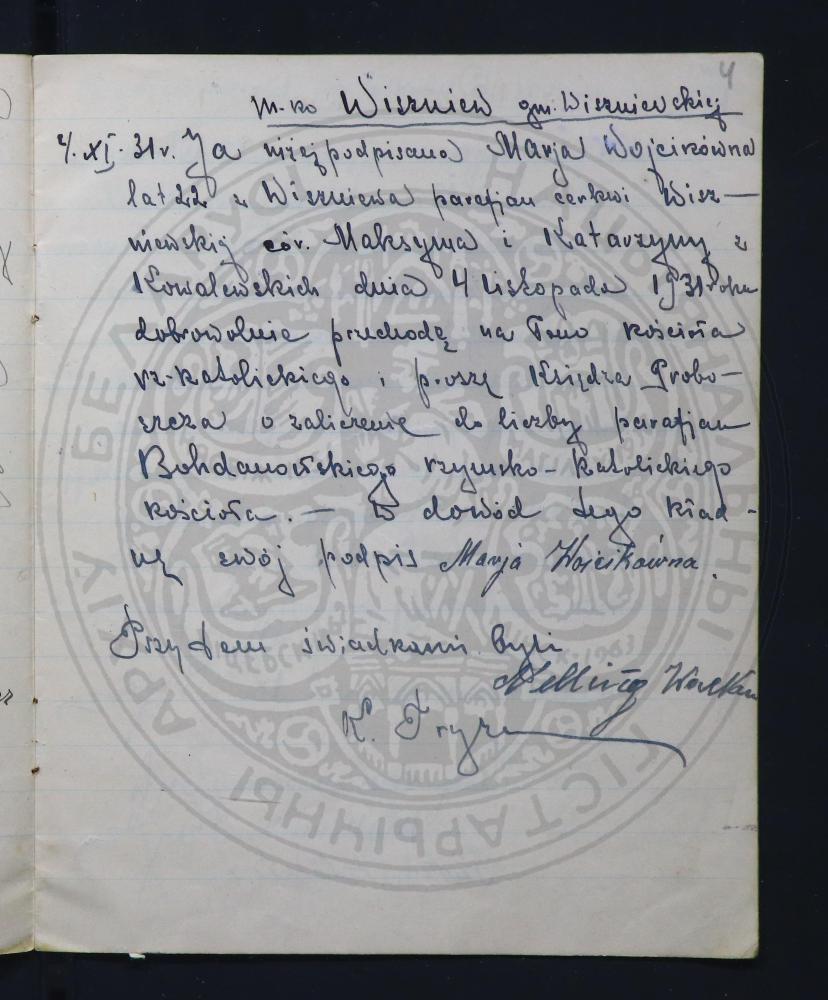 4
m-ko Wiszniew gm. Wiszniewskiej
4.XI.31r. Ja niżej podpisana Marja Wojcikówna
lat 22 z Wiszniewa parafjan cerkwi Wisz-
niewskiej cór. Maksyma i Katarzyny z
Kowalewskich dnia 4 listopada 1931 roku
dobrowolnie przechodzę na łono kościoła
rz-katolickiego i proszę Księdza Probo-
szcza o zaliczenie do liczby parafjan
Bohdanowskiego rzymsko-katolickiego
kościoła. — W dowód tego kład-
nę swój podpis Marja Wojcikówna.
Przytem świadkami byli
K.
НАЦЫЯНАЛЬНЫ ГІСТАРЫЧНЫ АРХІЎ БЕЛАРУСІ